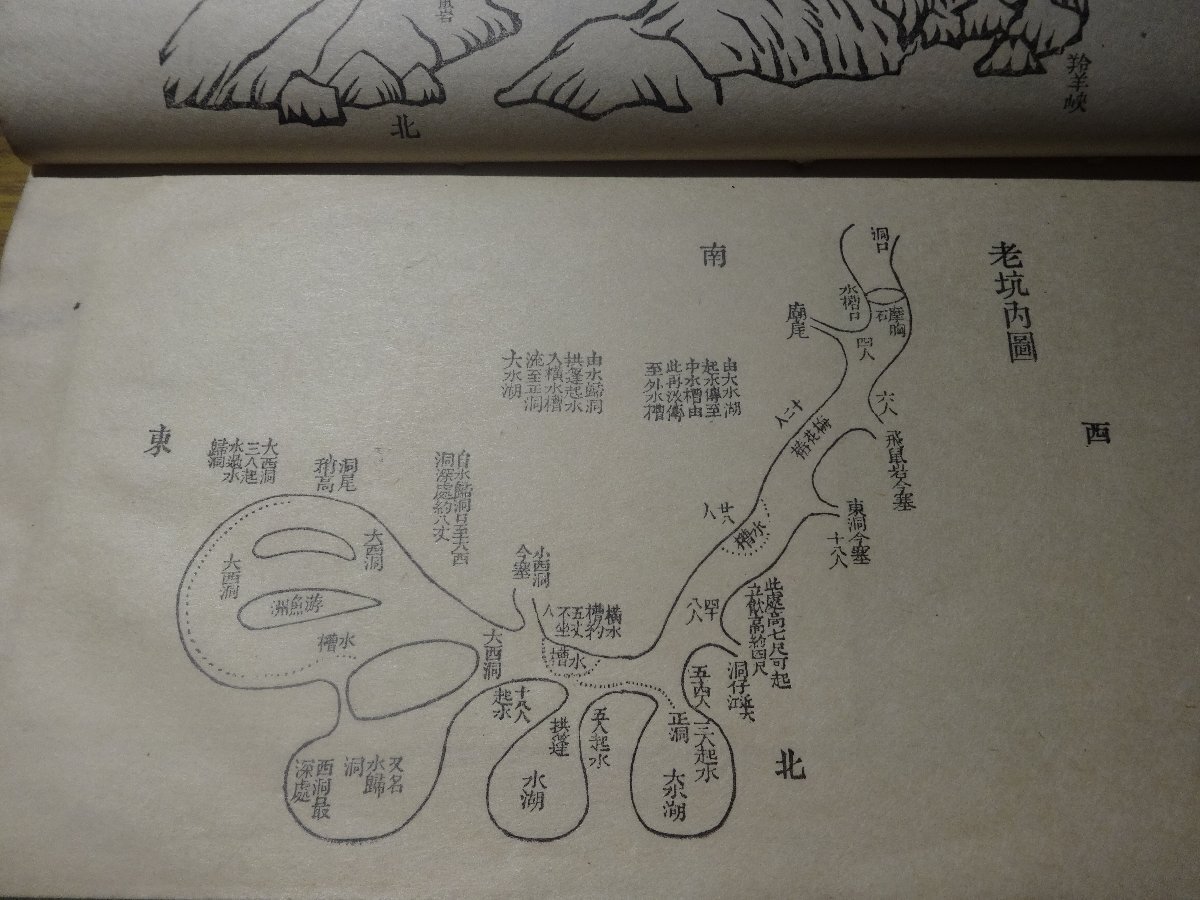 羚羊峽
北
老坑內圖
西
南
東
北
洞口
摩胸
石
水槽口
廟尾
四人
六人
飛鼠岩今塞
十二人
梅花樁
東洞今塞
十八人
廿八人
水槽
此處高七尺可起
洞仔
五十四人
三人起水
正洞
大水湖
由大水湖
起水傳至
中水槽由
至外水槽
由水歸洞
拱篷起水
入橫水槽
流至正洞
大水湖
橫水
槽約
五丈
不坐
人
水槽
小西洞
今塞
五人起水
拱篷
水湖
十八人
起水
大西洞
自水歸洞口至大西
洞深處約八丈
洞尾
稍高
大西洞
三人起
水過水
歸洞
大西洞
大西洞
游魚洲
水槽
又名
水歸
洞
西洞最
深處